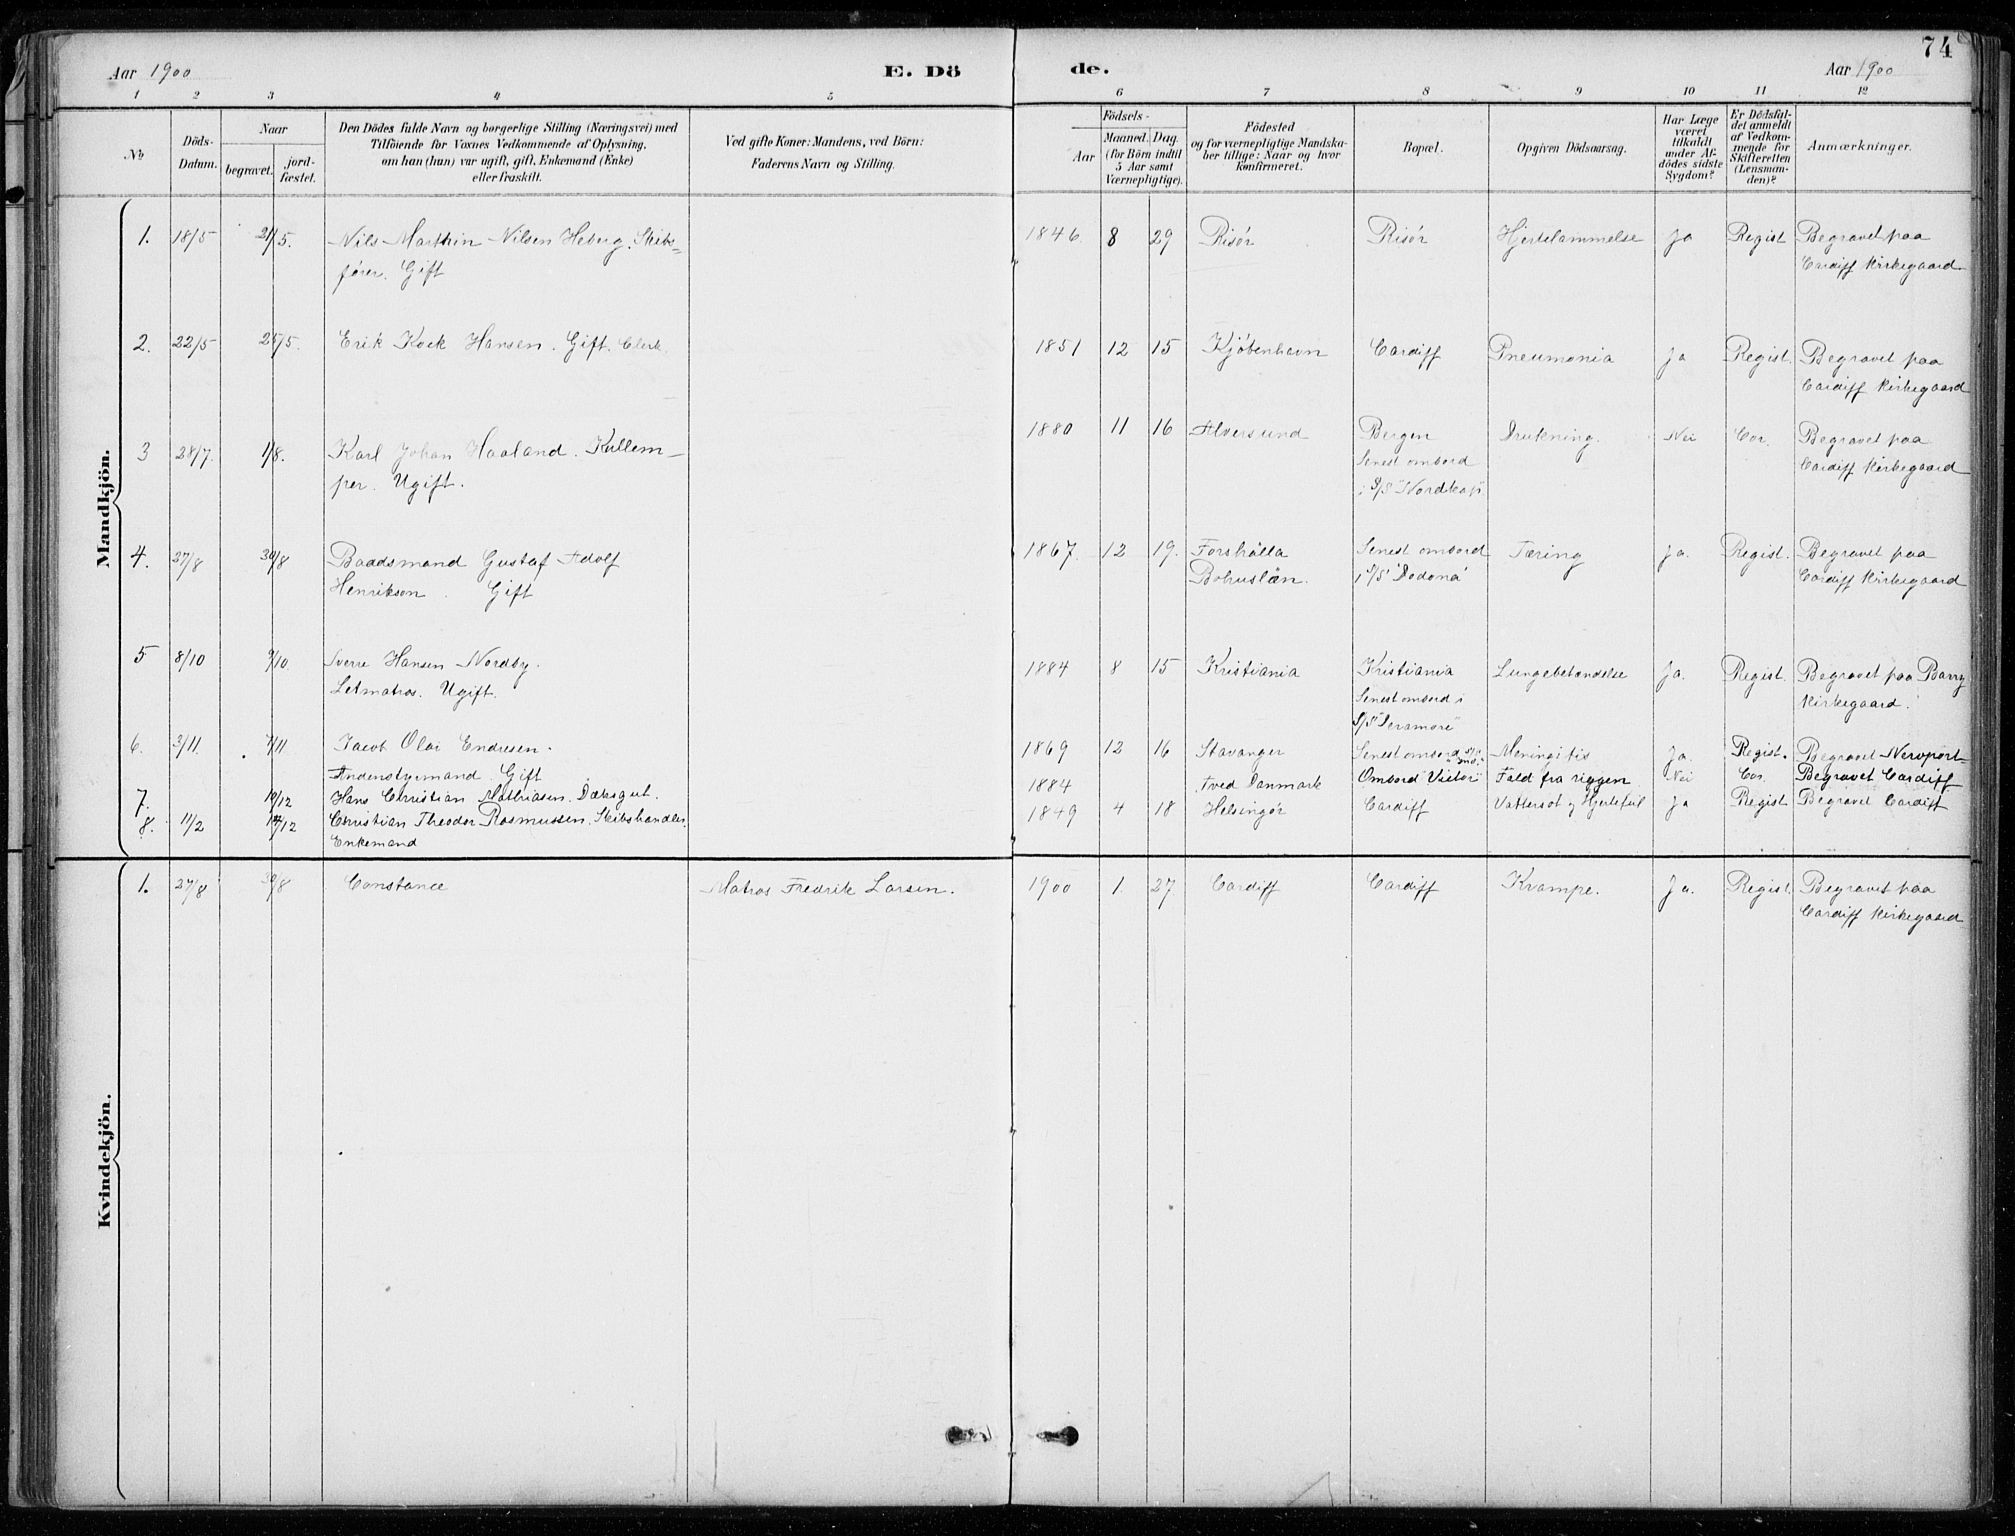 74
Aar 1900
E. Dö
de.
Aar 1900
1 2 3 4 5 6 7 8 9 10 11 12
No
Döds-
Datum.
Naar
begravet.
jord-
fæstet.
Den Dödes fulde Navn og borgerlige Stilling (Næringsvei) med
Tilföiende for Voxnes Vedkommende af Oplysning,
om han (hun) var ugift, gift, Enkemand (Enke)
eller fraskilt.
Ved gifte Koner: Mandens, ved Börn:
Faderens Navn og Stilling.
Födsels-
Aar
Maaned.
Dag.
(for Börn indtil
5 Aar samt
Værnepligtige).
Födested
og for værnepligtige Mandska-
ber tillige: Naar og hvor
konfirmeret.
Bopæl.
Opgiven Dödsaarsag.
Har Læge
været
tilkaldt
under Af-
dödes sidste
Sygdom?
Er Dödsfal-
det anmeldt
af Vedkom-
mende for
Skifteretten
(Lensman-
den)?
Anmærkninger.
Mandkjön.
1. 18/5 21/5. Nils Marthin Nilsen Heberg. Skibs- 1846. 8 29 Risør Risør Hjertelammelse Ja Regist Begravet paa
fører. Gift Cardiff Kirkegaard
2. 22/5 25/5. Erik Kock Hansen. Gift. Clerk. 1851 12 15 Kjöbenhavn Cardiff Pneumonia Ja Regist. Begravet paa
Cardiff Kirkegaard
3 28/7. 1/8. Karl Johan Haaland. Kullem- 1880 11 16 Alversund Bergen Drukning. Nei Cor. Begravet paa
per. Ugift. Senest ombord Cardiff Kirkegaard
i S/S "Nordkap"
4. 27/8 30/8 Baadsmand Gustaf Adolf 1867. 12 19. Forshälla Senest ombord Tæring Ja. Regist. Begravet paa
Henrikson. Gift Bohuslän. i S/S "Dodona" Cardiff Kirkegaard
5 8/10 9/10. Sverre Hansen Nordby. 1884 8 15 Kristiania Kristiania Lungebetændelse Ja. Regist. Begravet paa Barry
Letmatros. Ugift. Senest ombord i Kirkegaard.
S/S "Deramore"
6. 3/11. 7/11 Jacob Olai Endresen. 1869 12 16 Stavanger Senest ombord Meningitis Ja. Regist. Begravet Newport
Andenstyrmand. Gift
7. 10/12 Hans Christian Mathiasen. Dæksgut. 1884 Tved Danmark Ombord "Victor" Fald fra riggen Nei Cor. Begravet Cardiff
8. 11/2 14/12 Christian Theodor Rasmussen. Skibshandler. 1849 4 18 Helsingør Cardiff Vattersot og Hjertefeil Ja Regist Begravet Cardiff
Enkemand
Kvindekjön.
1. 27/8 30/8 Constance Matros Fredrik Larsen. 1900 1. 27 Cardiff Cardiff Krampe. Ja. Regist. Begravet paa
Cardiff Kirkegaard